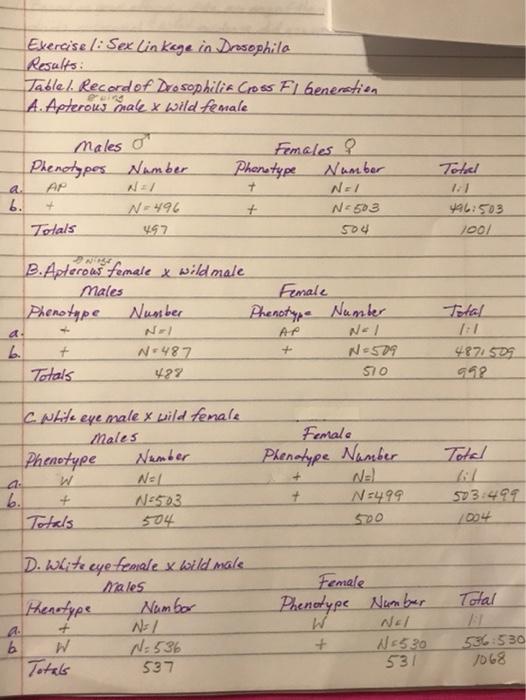 Exercise 1: Sex Linkage in Drosophila
Results:
Table 1. Record of Drosophilia Cross F1 Generation
A. Apterous male x wild female
Males ♂ Females ♀
Phenotypes Number Phenotype Number Total
a. AP N=1 + N=1 1:1
b. + N=496 + N=503 496:503
Totals 497 504 1001
B. Apterous female x wild male
Males Female
Phenotype Number Phenotype Number Total
a. + N=1 AP N=1 1:1
b. + N=487 + N=509 487:509
Totals 488 510 998
C. White eye male x wild female
Males Female
Phenotype Number Phenotype Number Total
a. W N=1 + N=1 1:1
b. + N=503 + N=499 503:499
Totals 504 500 1004
D. White eye female x wild male
Males Female
Phenotype Number Phenotype Number Total
a. + N=1 W N=1 1:1
b W N=536 + N=530 536:530
Totals 537 531 1068